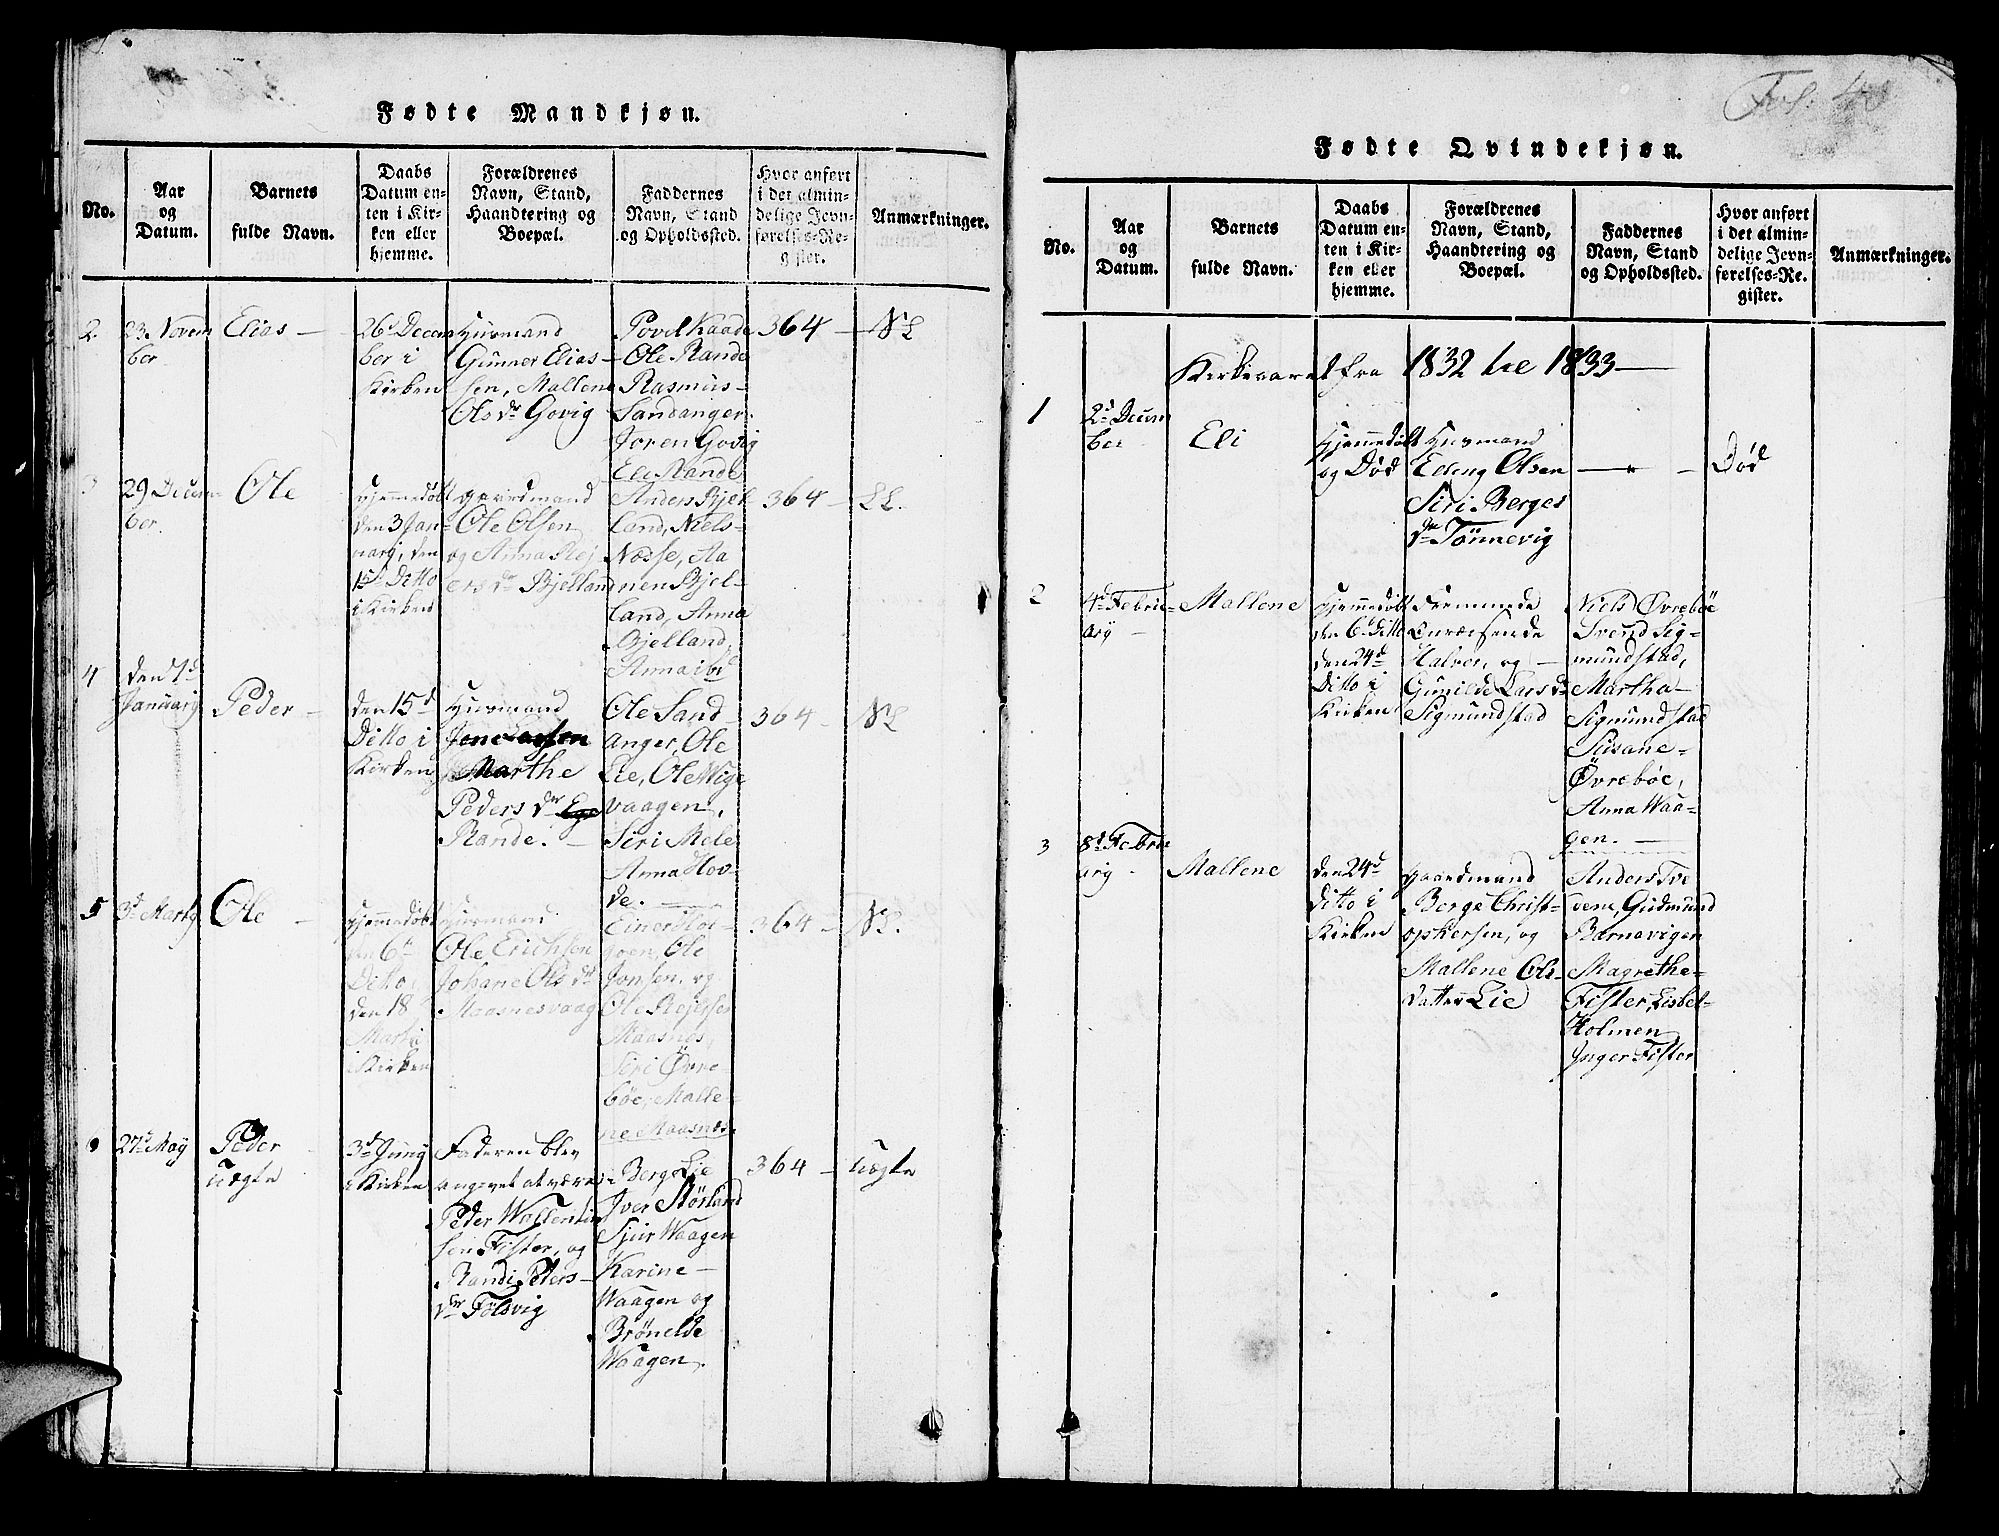 Fødte Mandkjøn.
No.
Aar
og
Datum.
Barnets
fulde Navn.
Daabs
Datum en-
ten i Kir-
ken eller
hjemme.
Forældrenes
Navn, Stand,
Haandtering og
Boepæl.
Faddernes
Navn, Stand
og Opholdssted.
Hvor anført
i det almin-
delige Jevn-
førelses-Re-
gister.
Anmærkninger.
2
23. Novem
ber
Elias —
26d Decem
ber i
Kirken
Huusmand
Gunner Elias-
sen, Mallene
Olsdr Govig
Povel Kaade
Ole Rande
Rasmus
Sandanger
Joren Govig
Eli Rande
364 —
NL
3
29 Decem
ber.
Ole
Hjemmedöbt
den 3 Jan-
uarj, den
15d Ditto
i Kirken
Gaardmand
Ole Olsen
og Anna Rej
ersdr Bjelland
Anders Bjel
land, Niels
Næsse, Aa
nen Bjel-
land, Anna
Bjelland,
Anna ibd
364 —
LL.
4
den 7d
Januarij
Peder —
den 15d
Ditto i
Kirken
Huusmand
Marthe
Pedersdr
Rande. —
Ole Sand-
anger, Ole
Lie, Ole Wige
vaagen,
Siri Mele
Anna Hov-
de. —
364 —
NL
5
3d Martz
Ole —
Hjemmedöbt
den 6d
Ditto,
den 18
Marti
i Kirken
Huusmand
Ole Erichsen
Johane Olsdr
Maasnesvaag
Einer Hou-
goen, Ole
Jonsen, og
Ole Rejersen
Maasnes,
Siri Øvre
bøe, Malle-
ne Maasnes.
364 —
NL.
27d Maÿ
Peder
uægte
3d Junÿ
i Kirken
Faderen blev
angivet at være
Peder Wallentin
sen Fister, og
Randi Peters-
dr Fölsvig
Berge Lie
Iver Störland
Sjur Waagen
Karine —
Waagen og
Brönelde
Waagen.
364 —
uægte
Fol: 40
Fødte Qvindekjøn.
No.
Aar
og
Datum.
Barnets
fulde Navn.
Daabs
Datum en-
ten i Kir-
ken eller
hjemme.
Forældrenes
Navn, Stand,
Haandtering og
Boepæl.
Faddernes
Navn, Stand
og Opholdssted.
Hvor anført
i det almin-
delige Jevn-
førelses-Re-
gister.
Anmærkninger.
Kirkeaaret fra 1832 til 1833 —
1
2d Decem
ber
Eli
Hjemmedöbt
og Död
Huusmand
Elling Olsen
Siri Berges
dr Tönnevig
— " —
Död
2
4d Febru-
arÿ —
Mallene
Hjemmedöbt
den 6d Ditto
den 24d
Ditto i
Kirken
Fremmede
Omreisende
Halvor, og —
Gunilde Larsdr
Sigmundstad
Niels Övreböe
Svend Sig-
mundstad,
Martha —
Sigmundstad
Susane —
Övreböe,
Anna Waa-
gen. —
3
8d Febru
arÿ —
Mallene
den 24d
Ditto i
Kirken
Gaardmand
Berge Christ-
ophersen, og
Mallene Ols-
datter Lie
Anders Tve
dene, Gudmund
Barnavigen
Magrethe —
Fister, Lisbet-
Holmen
Inger Fister